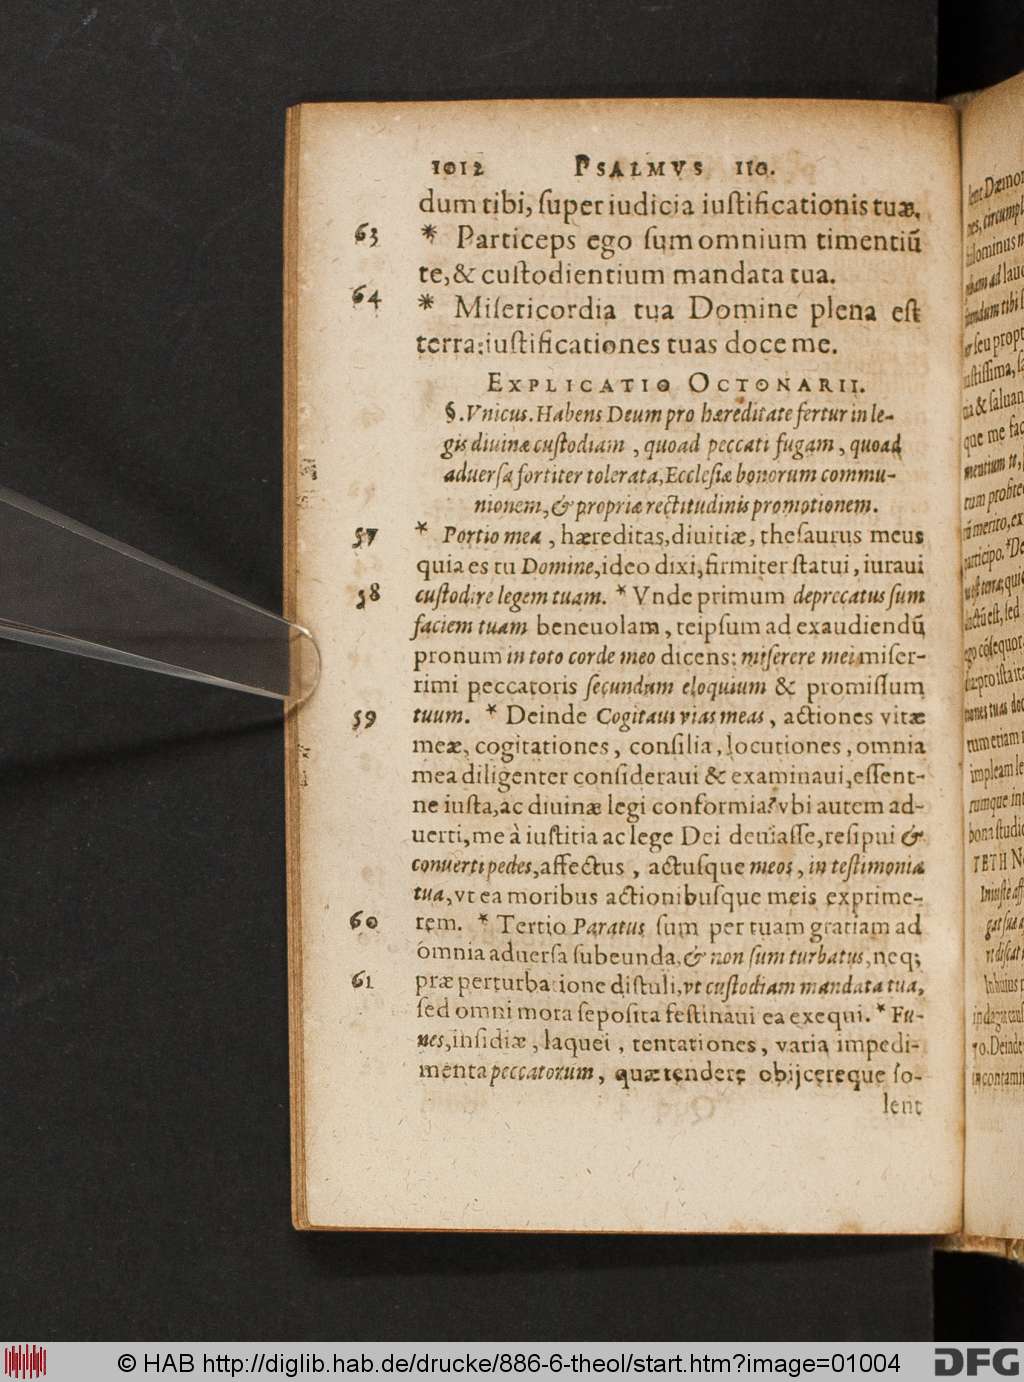 1012 PSALMVS 110.
dum tibi, ſuper iudicia iuſtificationis tuæ.
63 * Particeps ego ſum omnium timentiũ
te, & cuſtodientium mandata tua.
64 * Miſericordia tua Domine plena eſt
terra: iuſtificationes tuas doce me.
EXPLICATIO OCTONARII.
§. Vnicus. Habens Deum pro hæreditate fertur in le-
gis diuinæ cuſtodiam, quoad peccati fugam, quoad
aduerſa fortiter tolerata, Eccleſiæ bonorum commu-
nionem, & propriæ rectitudinis promotionem.
57 * Portio mea, hæreditas, diuitiæ, theſaurus meus
quia es tu Domine, ideo dixi, firmiter ſtatui, iuraui
58 cuſtodire legem tuam. * Vnde primum deprecatus ſum
faciem tuam beneuolam, teipſum ad exaudiendũ
pronum in toto corde meo dicens: miſerere mei miſer-
rimi peccatoris ſecundum eloquium & promiſſum
59 tuum. * Deinde Cogitaui vias meas, actiones vitæ
meæ, cogitationes, conſilia, locutiones, omnia
mea diligenter conſideraui & examinaui, eſſent-
ne iuſta, ac diuinæ legi conformia? vbi autem ad-
uerti, me à iuſtitia ac lege Dei deuiaſſe, reſipui &
conuerti pedes, affectus, actuſque meos, in teſtimonia
tua, vt ea moribus actionibuſque meis exprime-
60 rem. * Tertio Paratus ſum per tuam gratiam ad
omnia aduerſa ſubeunda, & non ſum turbatus, neq;
61 præ perturbatione diſtuli, vt cuſtodiam mandata tua,
ſed omni mora ſepoſita feſtinaui ea exequi. * Fu-
nes, inſidiæ, laquei, tentationes, varia impedi-
menta peccatorum, quæ tendere obijcereque ſo-
lent
© HAB http://diglib.hab.de/drucke/886-6-theol/start.htm?image=01004
DFG